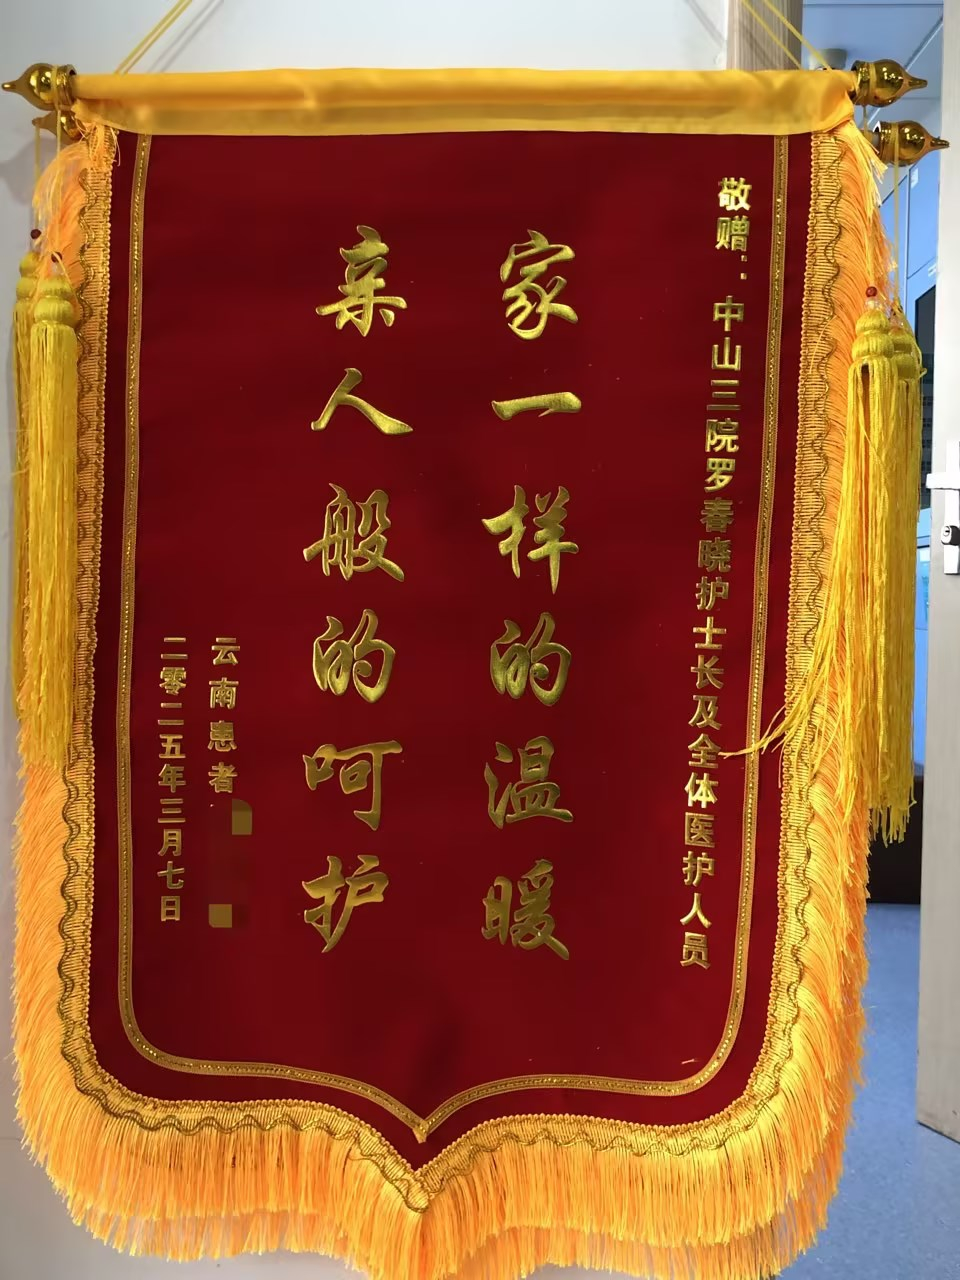 敬赠：中山三院罗春晓护士长及全体医护人员
家一样的温暖
亲人般的呵护
云南患者
二零二五年三月七日